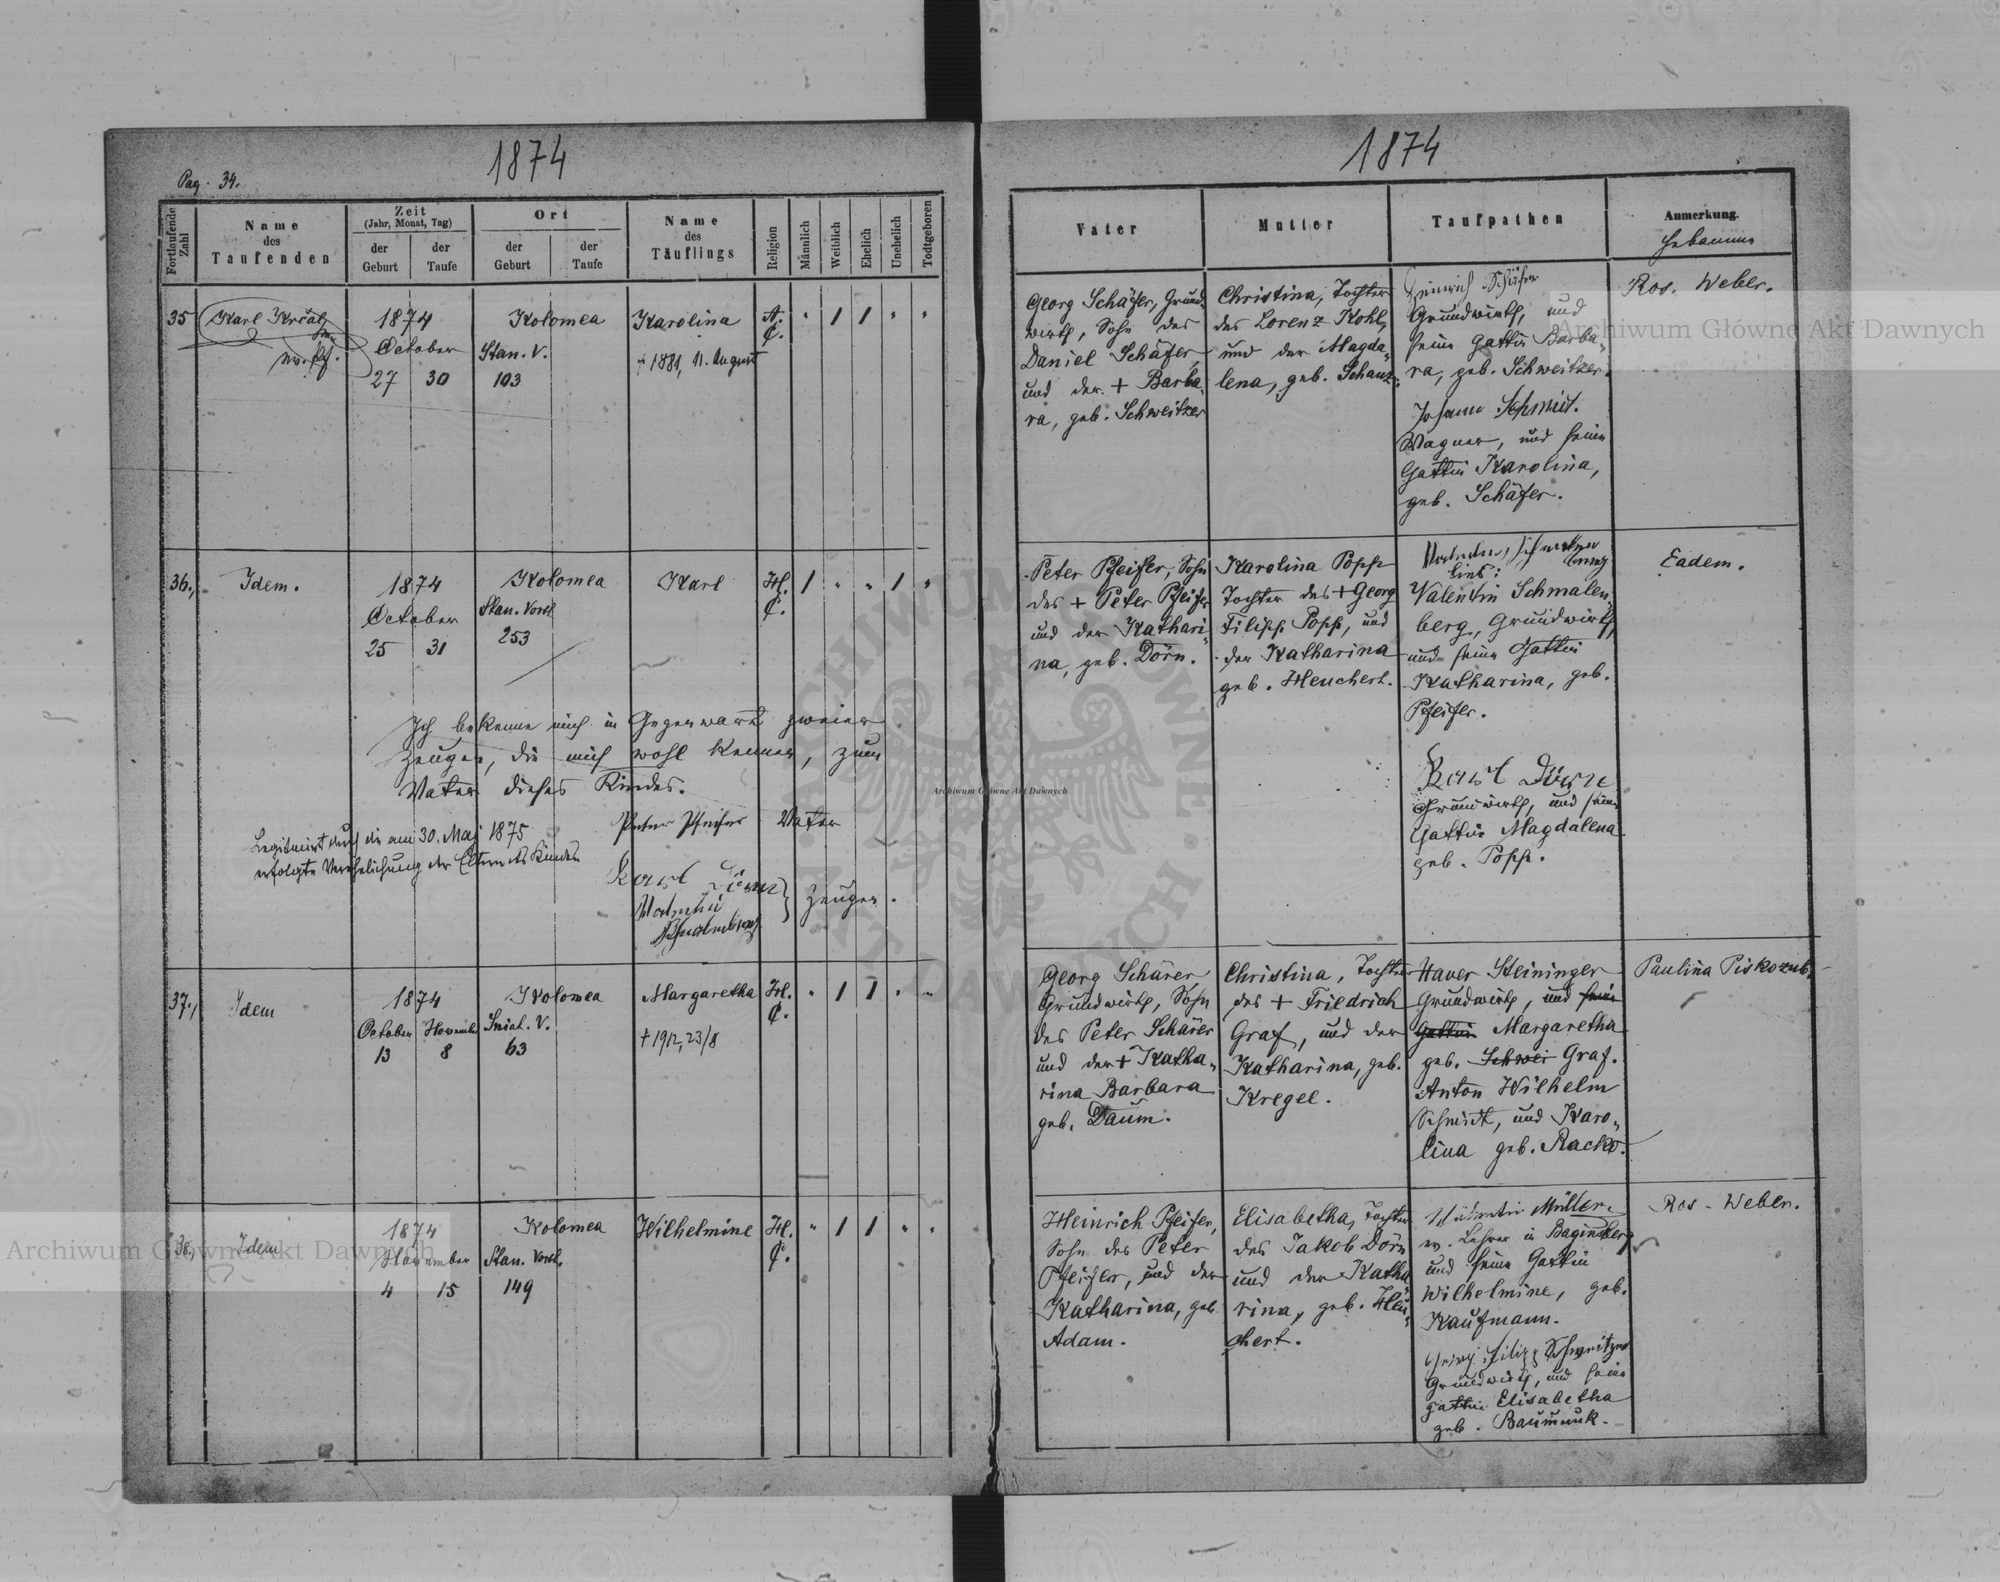 1874
Pag. 34.
Fortlaufende Zahl
Name des Taufenden
Zeit (Jahr, Monat, Tag)
der Geburt
der Taufe
Ort
der Geburt
der Taufe
Name des Täuflings
Religion
Männlich
Weiblich
Ehelich
Unehelich
Todtgeboren
35
Karl Krčal
ev. Pf.
1874
October
27 30
Kolomea
Stan. V.
103
Karolina
† 1881, 11. August
A. C.
" / / " "
36.,
Idem.
1874
October
25 31
Kolomea
Stan. Vorst
253
Karl
H. C.
/ " " / "
Ich bekenne mich in Gegenwart zweier
Zeugen, die mich wohl kennen, zum
Vater dieses Kindes.
Peter Pfeifer Vater
Legitimirt durch die am 30. Maj 1875
erfolgte Verehelichung der Eltern des Kindes
Karl Dörn
Zeugen.
37.,
Idem
1874
October November
13 8
Kolomea
Sniat. V.
63
Margaretha
† 1912, 23/8
H. C.
" / / " "
38.,
Idem
1874
November
4 15
Kolomea
Stan. Vorst.
149
Wilhelmine
H. C.
" / / " "
1874
Vater
Mutter
Taufpathen
Anmerkung.
Hebamme
Georg Schäfer, Grund
wirth, Sohn des
Daniel Schäfer,
und der + Barba
ra, geb. Schweitzer
Christina, Tochter
des Lorenz Kohl,
und der Magda„
lena, geb. Schanz.
Heinrich Schäfer
Grundwirth, und
seine Gattin Barba„
ra, geb. Schweitzer.
Johann Schmidt.
Wagner, und seine
Gattin Karolina,
geb. Schäfer.
Ros. Weber.
Peter Pfeifer, Sohn
des + Peter Pfeifer
und der Kathari„
na, geb. Dörn.
Karolina Popp
Tochter des + Georg
Filipp Popp, und
der Katharina
geb. Heuchert.
Valentin Schmalen„
berg, Grundwirth,
und seine Gattin
Katharina, geb.
Pfeifer.
Karl Dörn
Grundwirth, und seine
Gattin Magdalena
geb. Popp.
Eadem.
Georg Schärer
Grundwirth, Sohn
des Peter Schärer
und der + Katha„
rina Barbara
geb. Daum.
Christina, Tochter
des + Friedrich
Graf, und der
Katharina, geb.
Kregel.
Xaver Steininger
Grundwirth, und seine
Gattin Margaretha
geb. Schwei Graf.
Anton Wilhelm
Schmidt, und Karo„
lina geb. Racko.
Paulina Piskozub,
Heinrich Pfeifer,
Sohn des Peter
Pfeifer, und der
Katharina, geb.
Adam.
Elisabetha, Tochter
des Jakob Dörn
und der Katha„
rina, geb. Heu„
chert.
Müller,
ev. Lehrer in Baginsberg
und seine Gattin
Wilhelmine, geb.
Kaufmann.
Georg Filipp Schweitzer
Grundwirth, und seine
Gattin Elisabetha
geb. Baumunk.
Ros. Weber.
Archiwum Główne Akt Dawnych
Archiwum Główne Akt Dawnych
Archiwum Główne Akt Dawnych